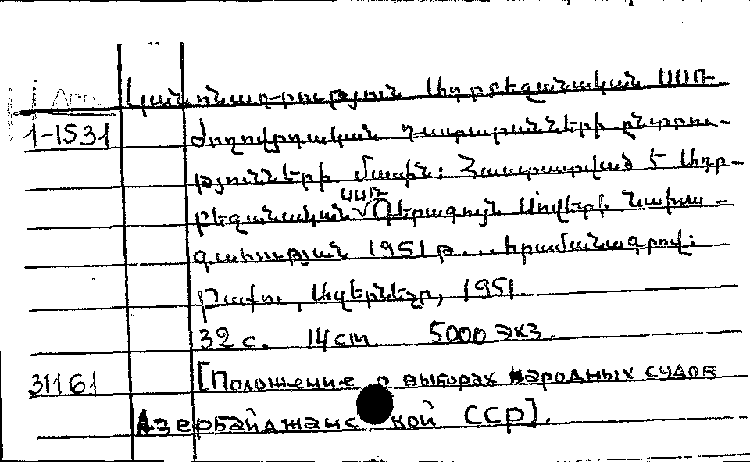 Կանոնադրություն Ադրբեջանական ՍՍՌ
1-1531 ժողովրդական դատարանների ընտրու-
թյունների մասին: Հաստատված է Ադր-
բեջանական ՍՍՌ Գերագույն Սովետի Նախա-
գահության 1951 թ. . . հրամանագրով:
Բաքու, Ազերնեշր, 1951
32 с. 14cm 5000 экз.
31161 [Положение о выборах народных судов
Азербайджанской ССР].